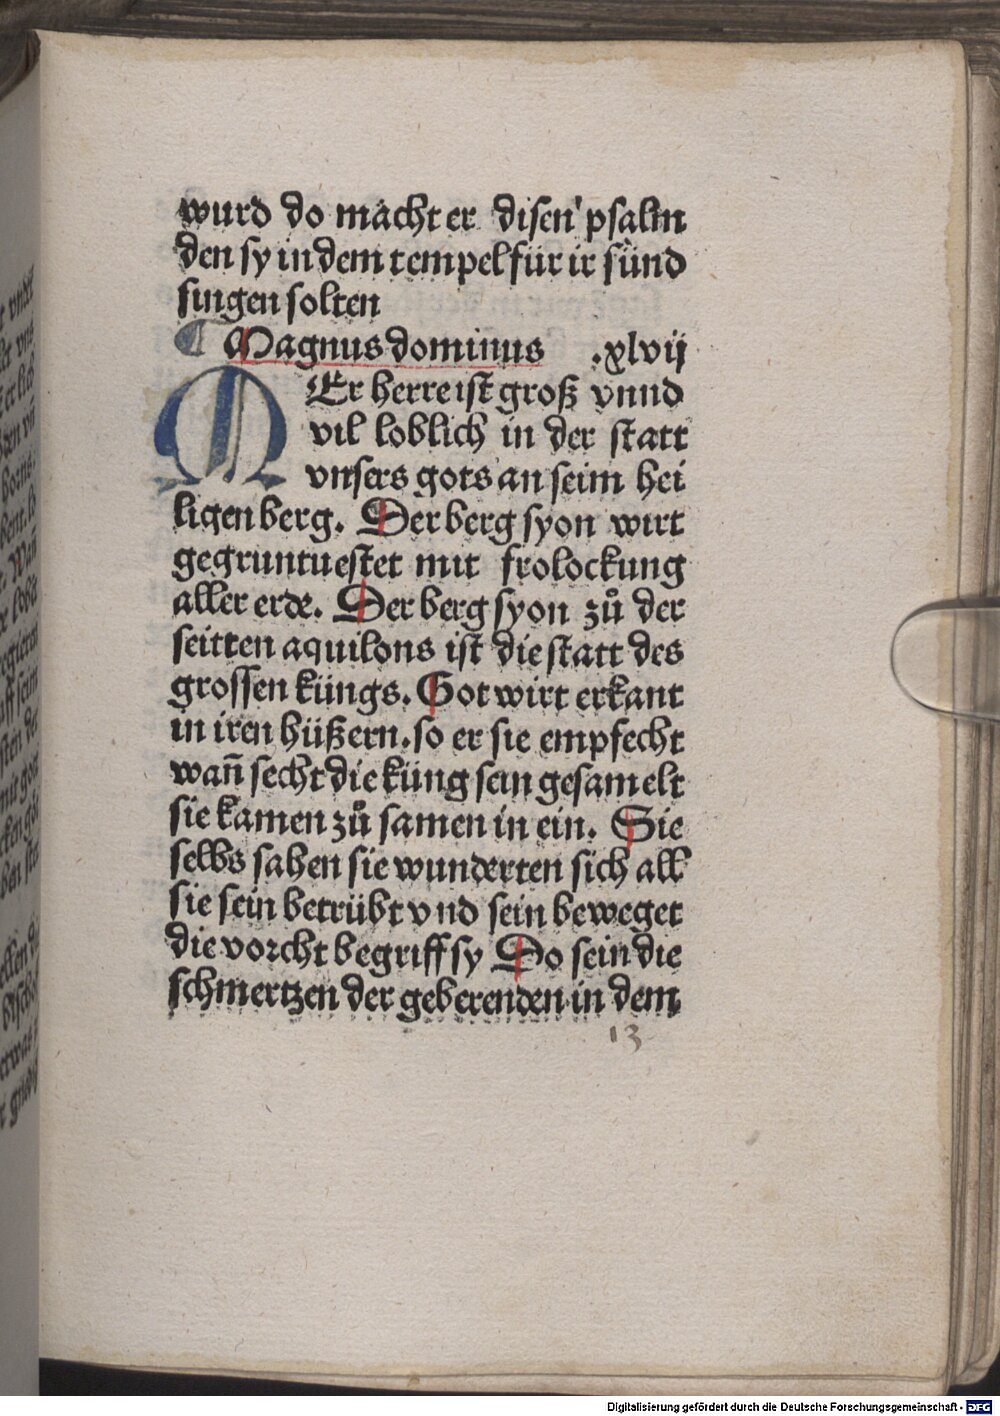 wurd do macht er disen psalm
den sy in dem tempel für ir sünd
singen solten
¶ Magnus dominus .xlvij
MEr herre ist groß vnnd
vil loblich in der statt
vnsers gots an seim hei
ligen berg. Der berg syon wirt
gegruntuestet mit frolockung
aller erde. Der berg syon zů der
seitten aquilons ist die statt des
grossen küngs. Got wirt erkant
in iren hüßern. so er sie empfecht
wañ secht die küng sein gesamelt
sie kamen zů samen in ein. Sie
selbs sahen sie wunderten sich all
sie sein betrübt vnd sein beweget
die vorcht begriff sy Do sein die
schmertzen der geberenden in dem
13
Digitalisierung gefördert durch die Deutsche Forschungsgemeinschaft - DFG